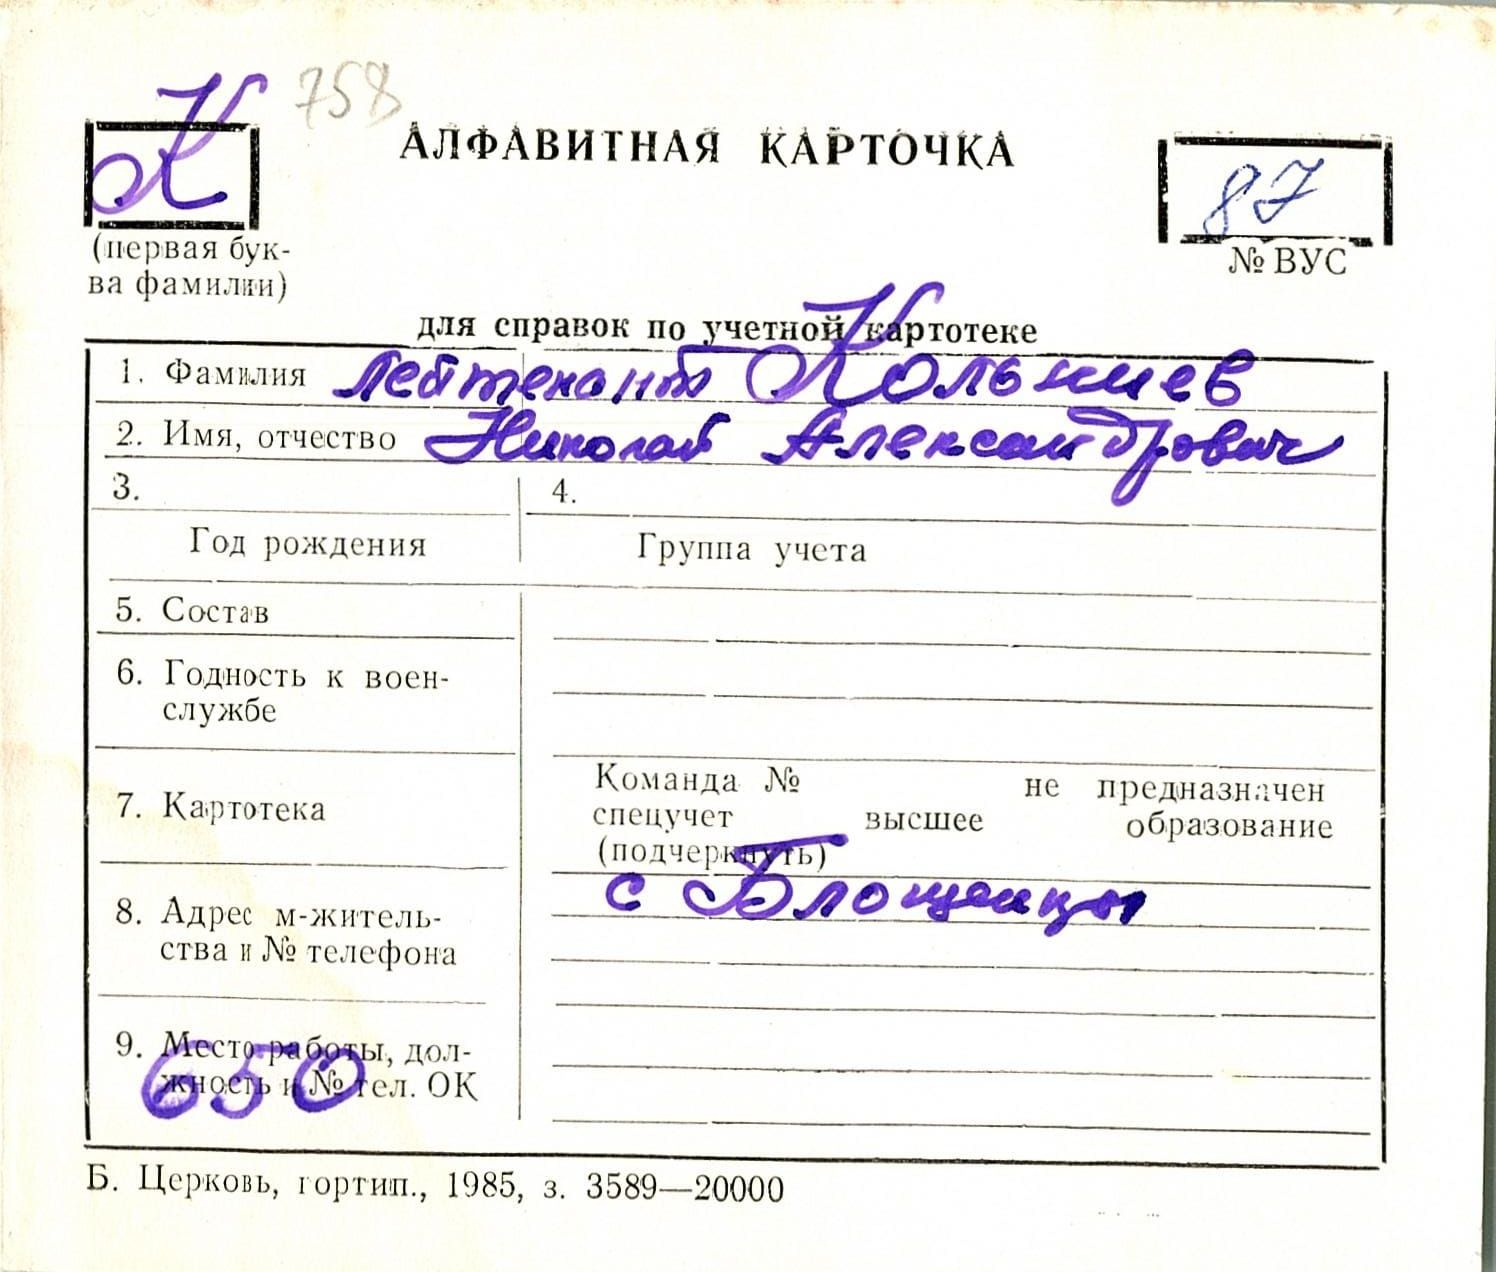 К 758
АЛФАВИТНАЯ КАРТОЧКА
87
(первая бук-
ва фамилии)
№ ВУС
для справок по учетной картотеке
1. Фамилия лейтенант Кольниев
2. Имя, отчество Николай Александрович
3. 4.
Год рождения Группа учета
5. Состав
6. Годность к воен-
службе
7. Картотека
Команда № не предназначен
спецучет высшее образование
(подчеркнуть)
8. Адрес м-житель-
ства и № телефона
с Блощенцы
9. Место работы, дол-
жность и № тел. ОК
650
Б. Церковь, гортип., 1985, з. 3589—20000